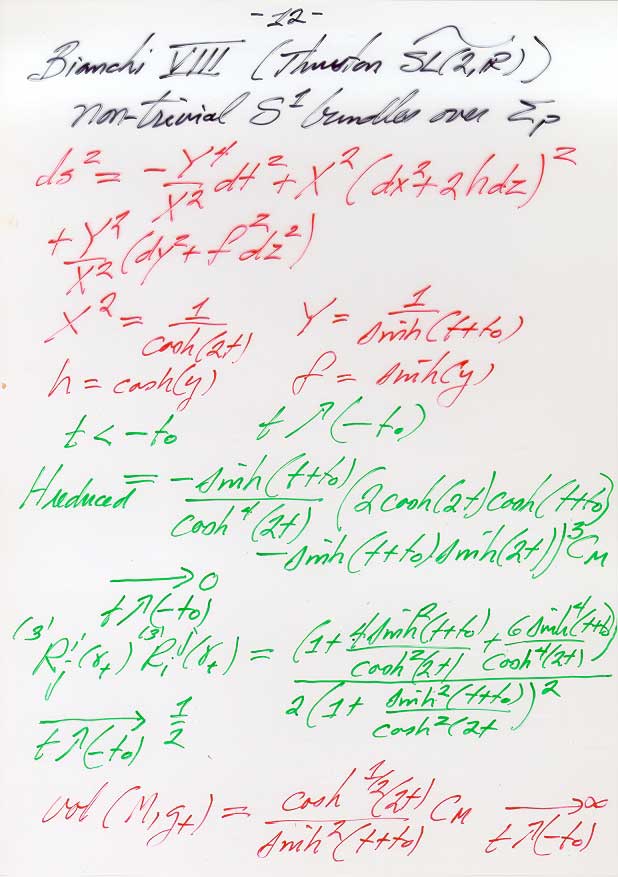 -12-
Bianchi VIII (Thurston S̃L(2,ℝ))
non-trivial S¹ bundles over Σₚ
ds² = -Y⁴/X² dt² + X²(dx² + 2hdz)²
+ Y²/X² (dy² + f²dz²)
X² = 1/cosh(2t) Y = 1/sinh(t+t₀)
h = cosh(y) f = sinh(y)
t < -t₀ t ↗ (-t₀)
Hreduced = -sinh(t+t₀)/cosh⁴(2t) (2cosh(2t)cosh(t+t₀)
- sinh(t+t₀)sinh(2t))³ C_M
⟶ 0
t↗(-t₀)
⁽³⁾Rⁱⱼ(γₜ) ⁽³⁾Rʲᵢ(γₜ) = (1 + 4sinh²(t+t₀)/cosh²(2t) + 6sinh⁴(t+t₀)/cosh⁴(2t)) / 2(1 + sinh²(t+t₀)/cosh²(2t)²
⟶ 1/2
t↗(-t₀)
vol(M,gₜ) = cosh^{1/2}(2t)/sinh²(t+t₀) C_M ⟶ ∞
t↗(-t₀)